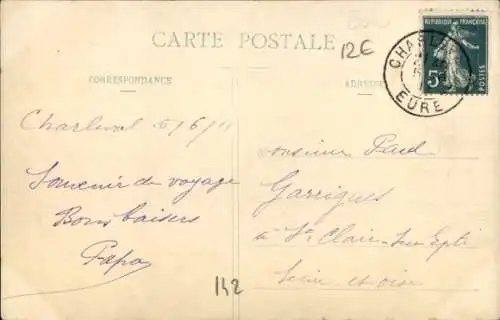 CARTE POSTALE
12€
CORRESPONDANCE
ADRESSE
REPUBLIQUE FRANÇAISE
5
POSTES
EURE
Charleval 5/6/11
Souvenir de voyage
Bons baisers
Papa
Monsieur Paul
Garrigues
à St Clair-Sur Epte
Seine et oise
142